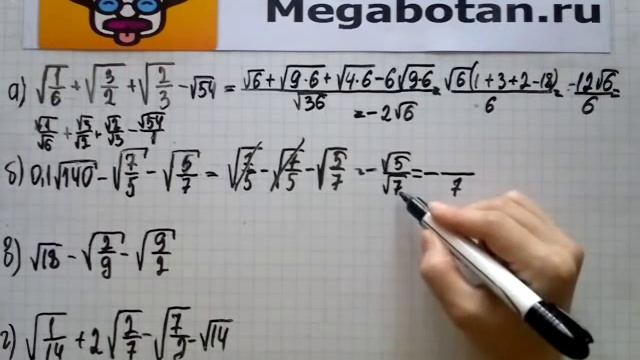 Megabotan.ru
а) √1/6 + √3/2 + √2/3 - √54 = √6 + √9·6 + √4·6 - 6√9·6 / √36 = √6(1+3+2-18) / 6 = -12√6 / 6 =
= -2√6
√1/√6 + √3/√2 + √2/√3 - √54/1
б) 0,1√140 - √7/5 - √5/7 = √7/5 - √7/5 - √5/7 = - √5/√7 = - /7
в) √18 - √2/9 - √9/2
г) √1/14 + 2√2/7 - √7/2 - √14